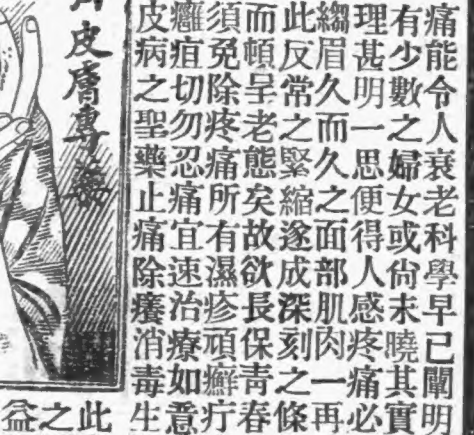 痛能令人衰老科學早已闡明
有少數之婦女或尙未曉其實
理甚明一思便得人感疼痛必
縐眉久而久之面部肌肉一再
此反常之緊縮遂成深刻之條
而頓呈老態矣故欲長保靑春
須免除疼痛所有濕疹頑癬疔
癰疽切勿忍痛宜速治療如意
皮病之聖藥止痛除癢消毒生
皮膚專
此之益